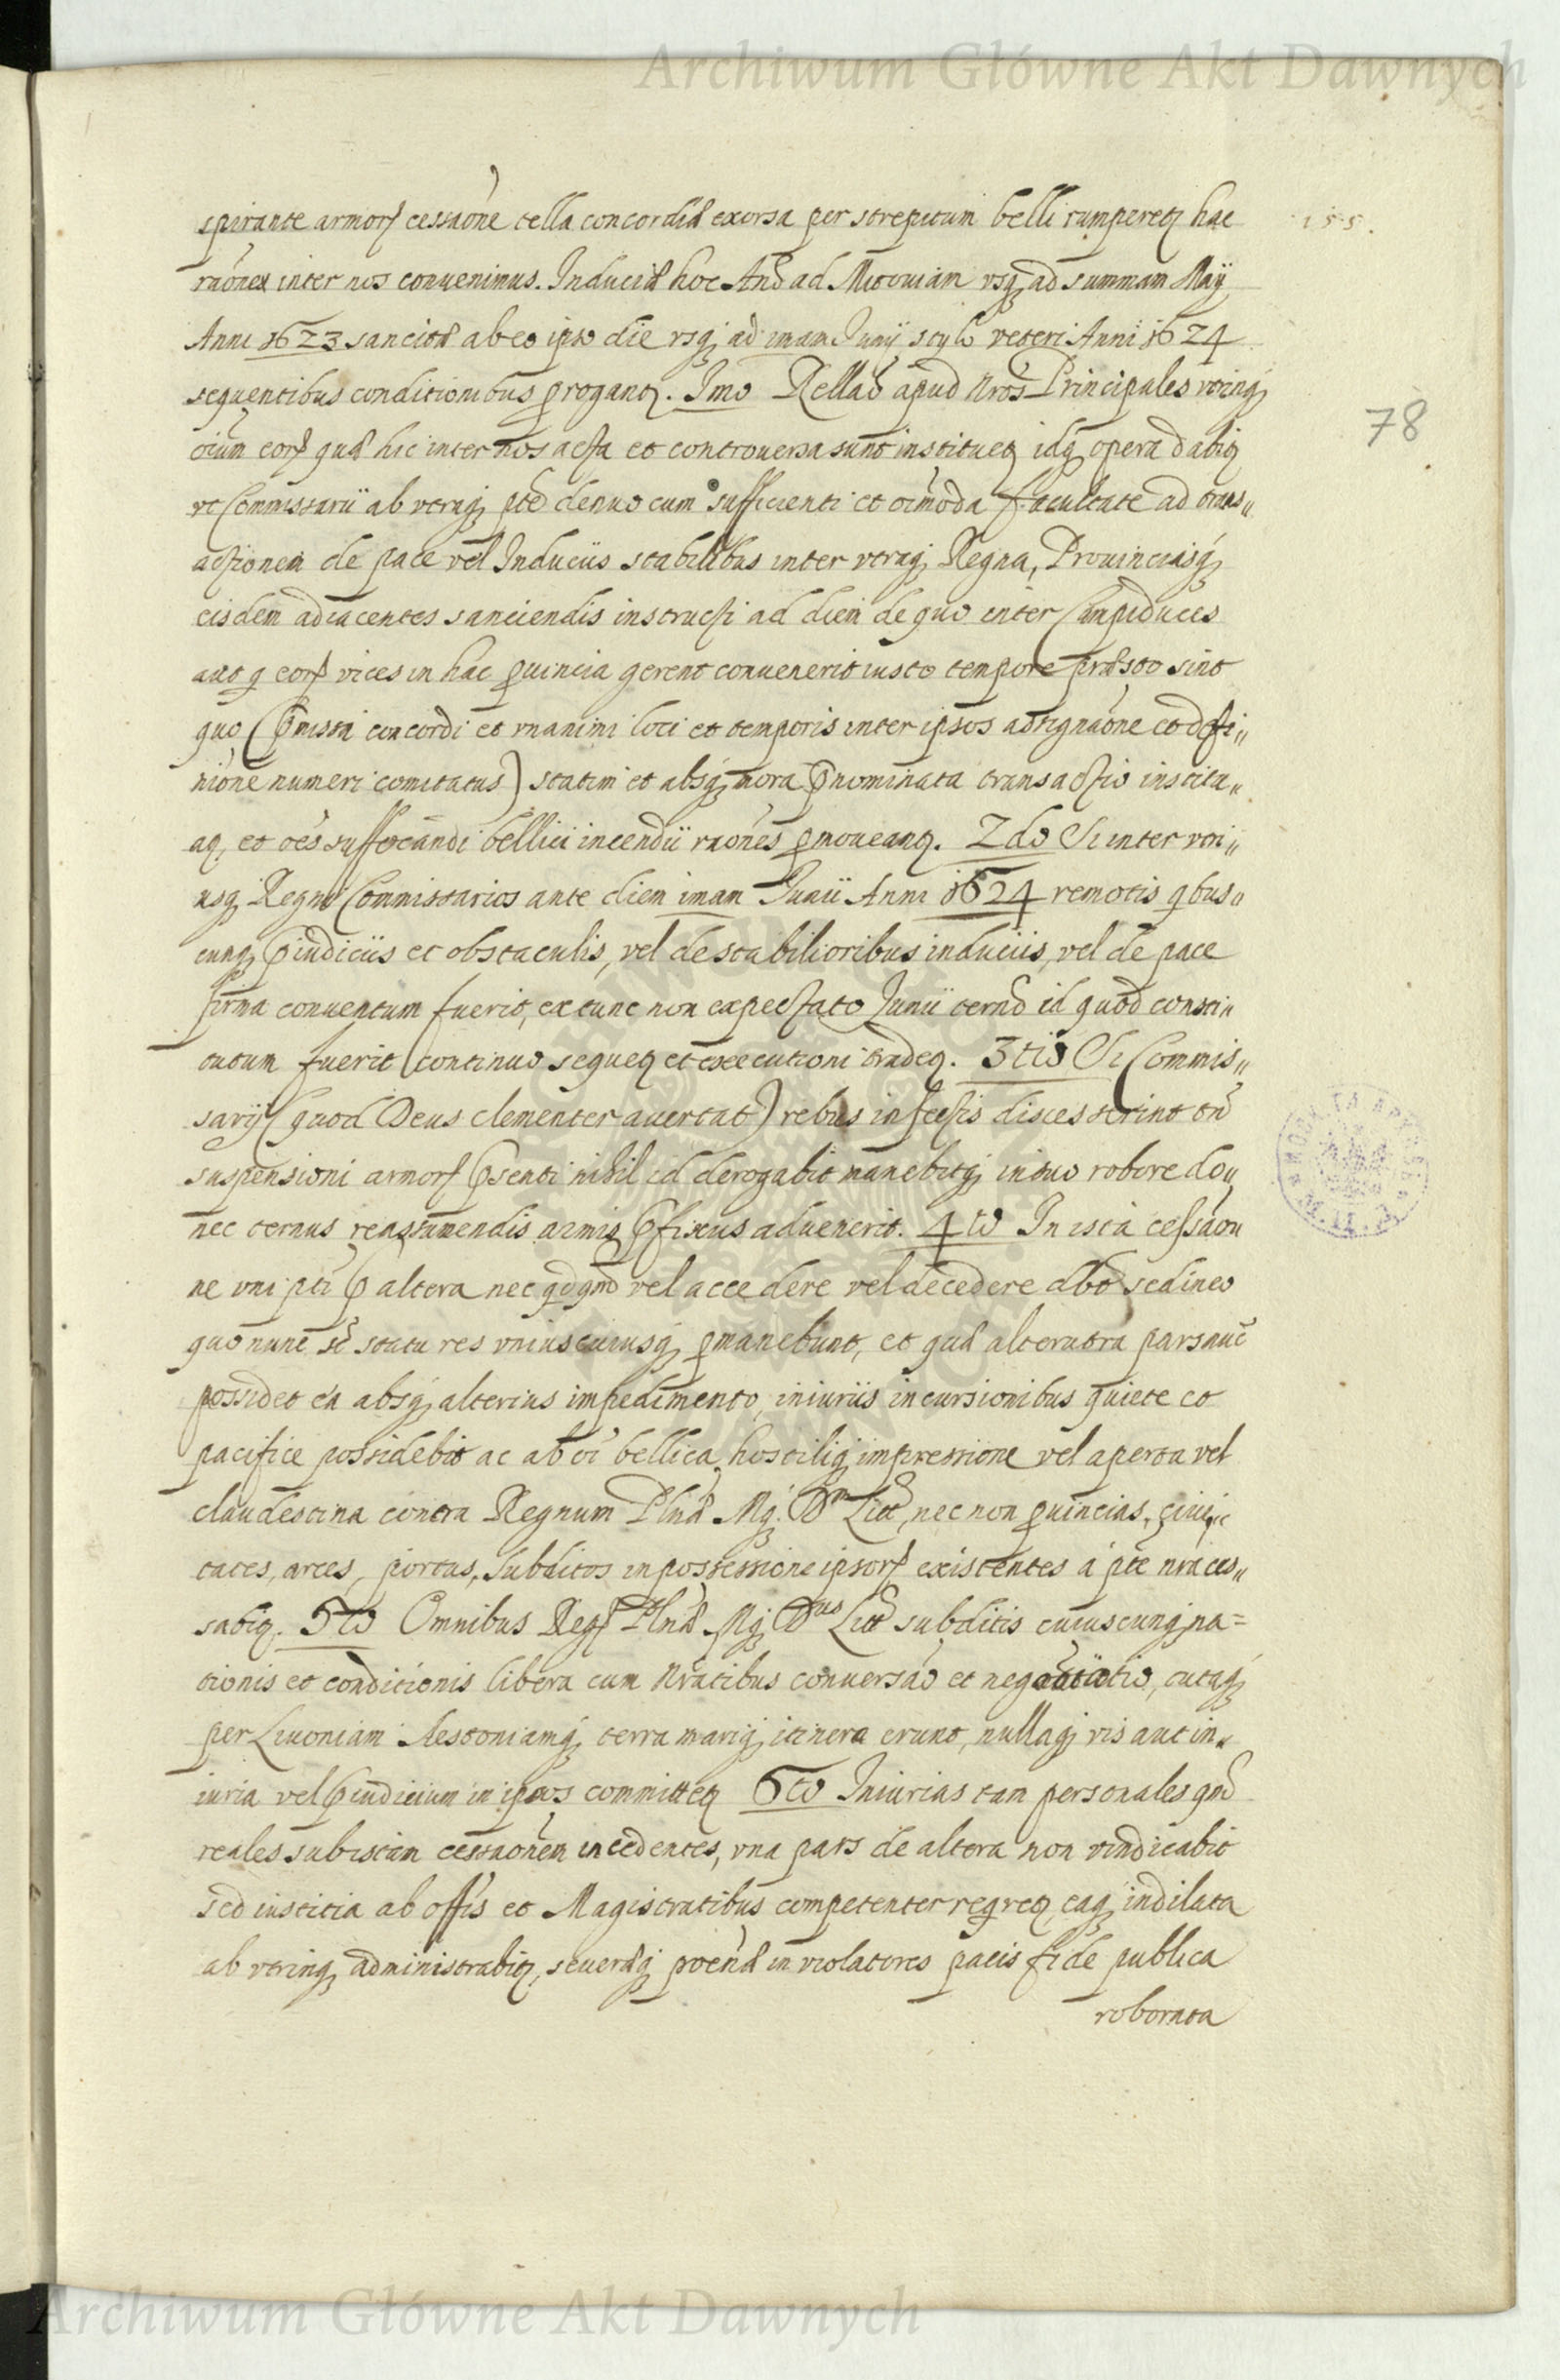 Archiwum Główne Akt Dawnych
spirante armorꝝ cessaōne tella concordiæ exorsa per strepitum belli rumperetꝫ hac
155.
raōnes inter nos conuenimus. Induciæ hoc Anō ad Mitouiam vsqꝫ ad summam Maÿ
Anni 1623 sancitæ ab eo ipso die vsqꝫ ad imam Junÿ stylo veteri Anni 1624
sequentibus conditionibus ꝓrogantꝫ. Imo Rellaō apud Nros Principales vtrinqꝫ
78
oium eorꝝ quæ hic inter nos acta et controuersa sunt instituetꝫ idqꝫ opera dabitꝫ
vt Commissarii ab vtraqꝫ pte denuo cum sufficienti et oimoda facultate ad trans„
actionem de pace vel Induciis stabilibus inter vtraqꝫ Regna, Prouinciasqꝫ
eisdem adiacentes sanciendis instructi ad diem de quo inter Campiduces
aut q̨ eorꝝ vices in hac ꝓuincia gerent conuenerit iusto tempore præsto sint
quo (p̄missa concordi et vnanimi loci et temporis inter ipsos adsignaōne et defi„
nione numeri comitatus) statim et absqꝫ mora p̄nominata transactio institu„
atꝫ, et oēs suffocandi bellici incendii raōnes ꝓmoueantꝫ. 2do Si inter vtri„
usqꝫ Regni Commissarios ante diem imam Junii Anni 1624 remotis q̨bus„
cunqꝫ p̄iudiciis et obstaculis, vel de stabilioribus induciis, vel de pace
firma conuentum fuerit, extunc non expectato Junii termō id quod consti„
tutum fuerit continuo sequetꝫ et executioni tradetꝫ. 3tio Si Commis„
sarÿ (quod Deus clementer auertat) rebus infectis discesserint tn̄
suspensioni armorꝝ p̄senti nihil id derogabit manebitqꝫ in suo robore do„
nec ternus reassumendis armis p̄fixus aduenerit. 4to In ista cessaō„
ne vni pti p̄ altera nec q̨dqm̄ vel accedere vel decedere dbt sed in eo
quo nunc st̄ statu res vniuscuiusqꝫ ꝑmanebunt, et quæ alterutra pars nūc
possidet ea absqꝫ alterius impedimento, iniuriis incursionibus quiete et
pacifice possidebit ac ab oi bellica, hostiliqꝫ impressione vel aperta vel
clandestina contra Regnum Plnæ Mgꝫ Dm Litt, nec non ꝓuincias, ciui„
tates, arces, portus, subditos in possessione ipsorꝝ existentes a pte nra ces„
sabitꝫ. 5to Omnibus Regꝫ Plnæ Mgꝫ Dus Litt subditis cuiuscunqꝫ na=
tionis et conditionis libera cum nratibus conuersaō et negotiatio, tutaqꝫ
per Liuoniam Aestoniamqꝫ terra mariqꝫ itinera erunt, nullaqꝫ vis aut in„
iuria vel p̄iudicium in ipsos committetꝫ 6to Iniurias tam personales qm̄
reales sub istam cessaōnem incedentes, vna pars de altera non vindicabit
sed iustitia ab offis et Magistratibus competenter reqretꝫ eaqꝫ indilata
ab vtrinqꝫ administrabitꝫ, seueræqꝫ poenæ in violatores pacis fide publica
roborata
Archiwum Główne Akt Dawnych